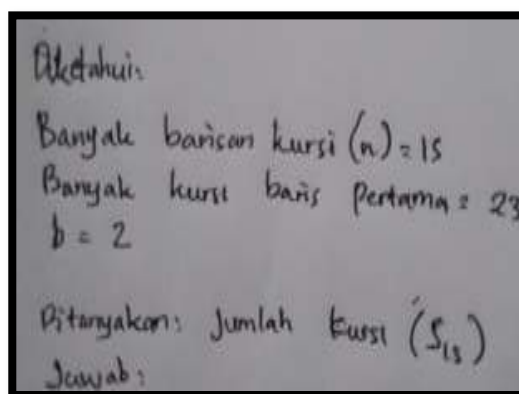 Diketahui:
Banyak barisan kursi (n) = 15
Banyak kursi baris pertama = 23
b = 2
Ditanyakan: Jumlah kursi (S15)
Jawab: